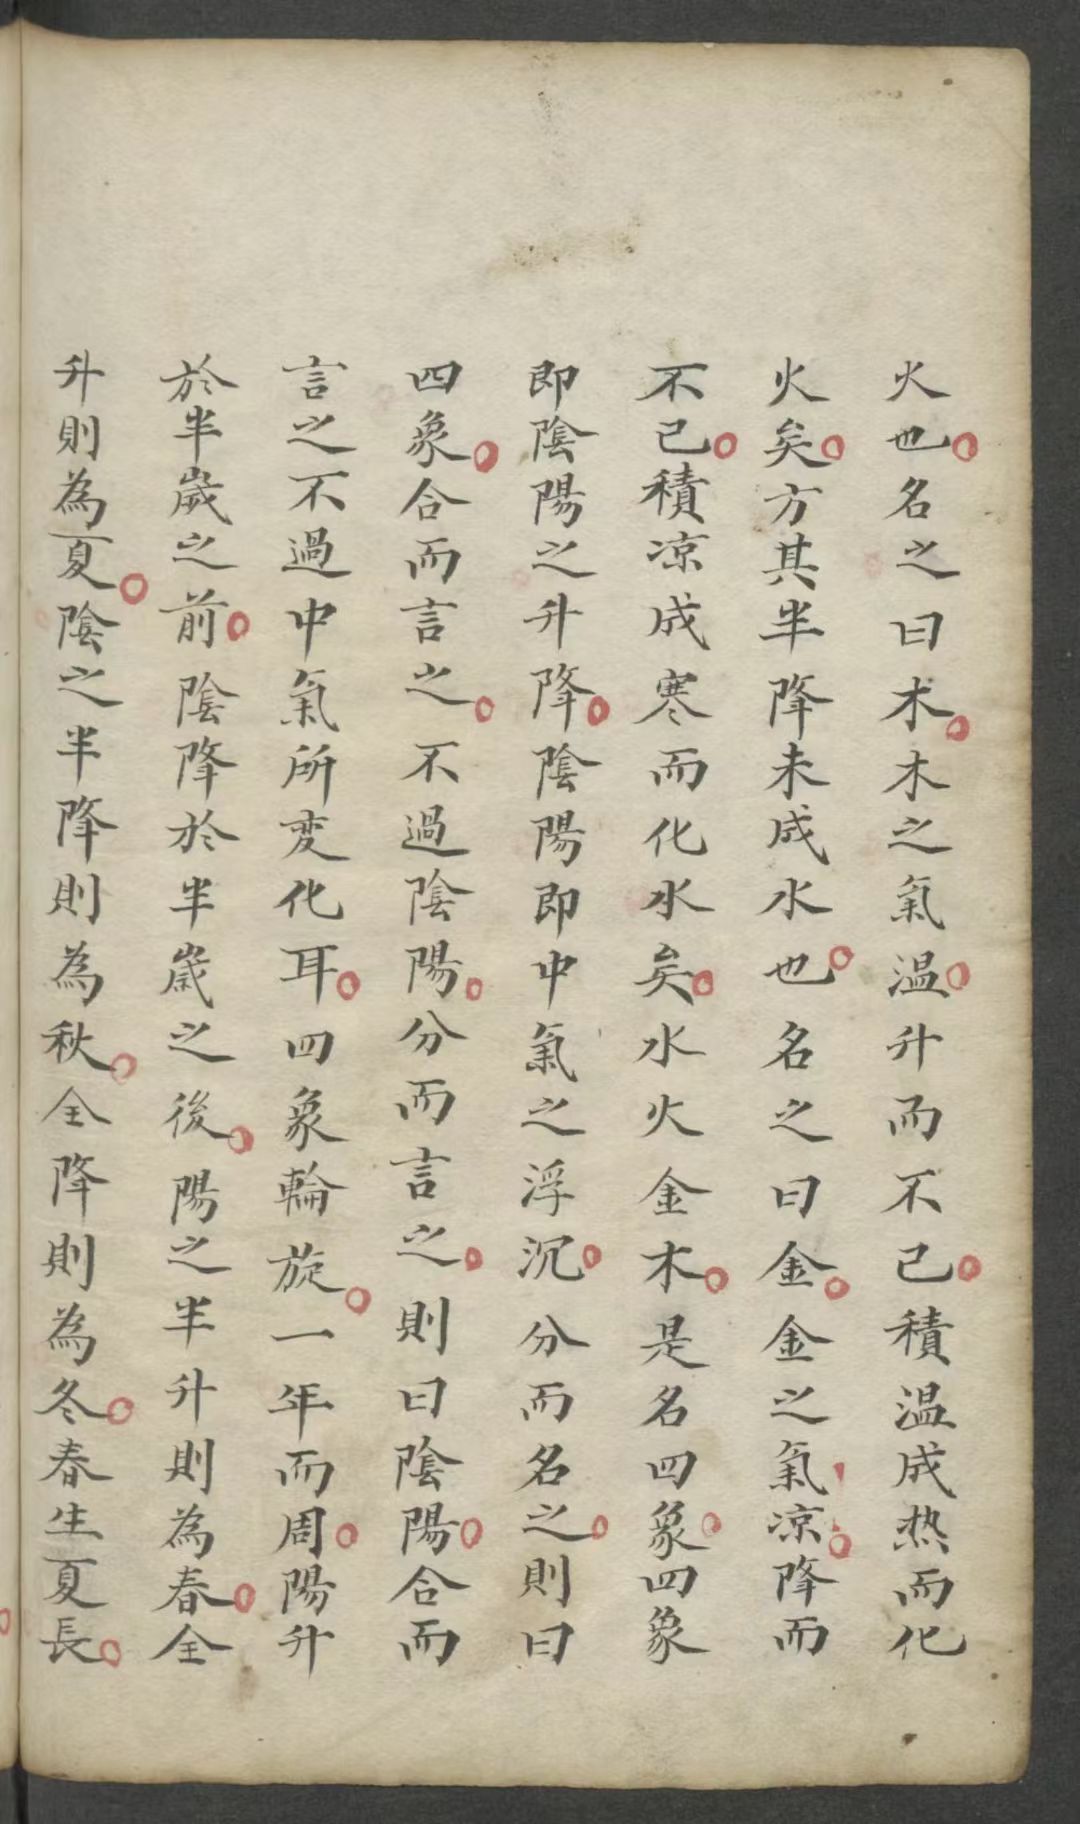 火也名之曰木木之氣温升而不已積温成热而化
火矣方其半降未成水也名之曰金金之氣凉降而
不已積凉成寒而化水矣水火金木是名四象四象
即陰陽之升降陰陽即中氣之浮沉分而名之則曰
四象合而言之不過陰陽分而言之則曰陰陽合而
言之不過中氣所变化耳四象輪旋一年而周陽升
於半歲之前陰降於半歲之後陽之半升則為春全
升則為夏陰之半降則為秋全降則為冬春生夏長